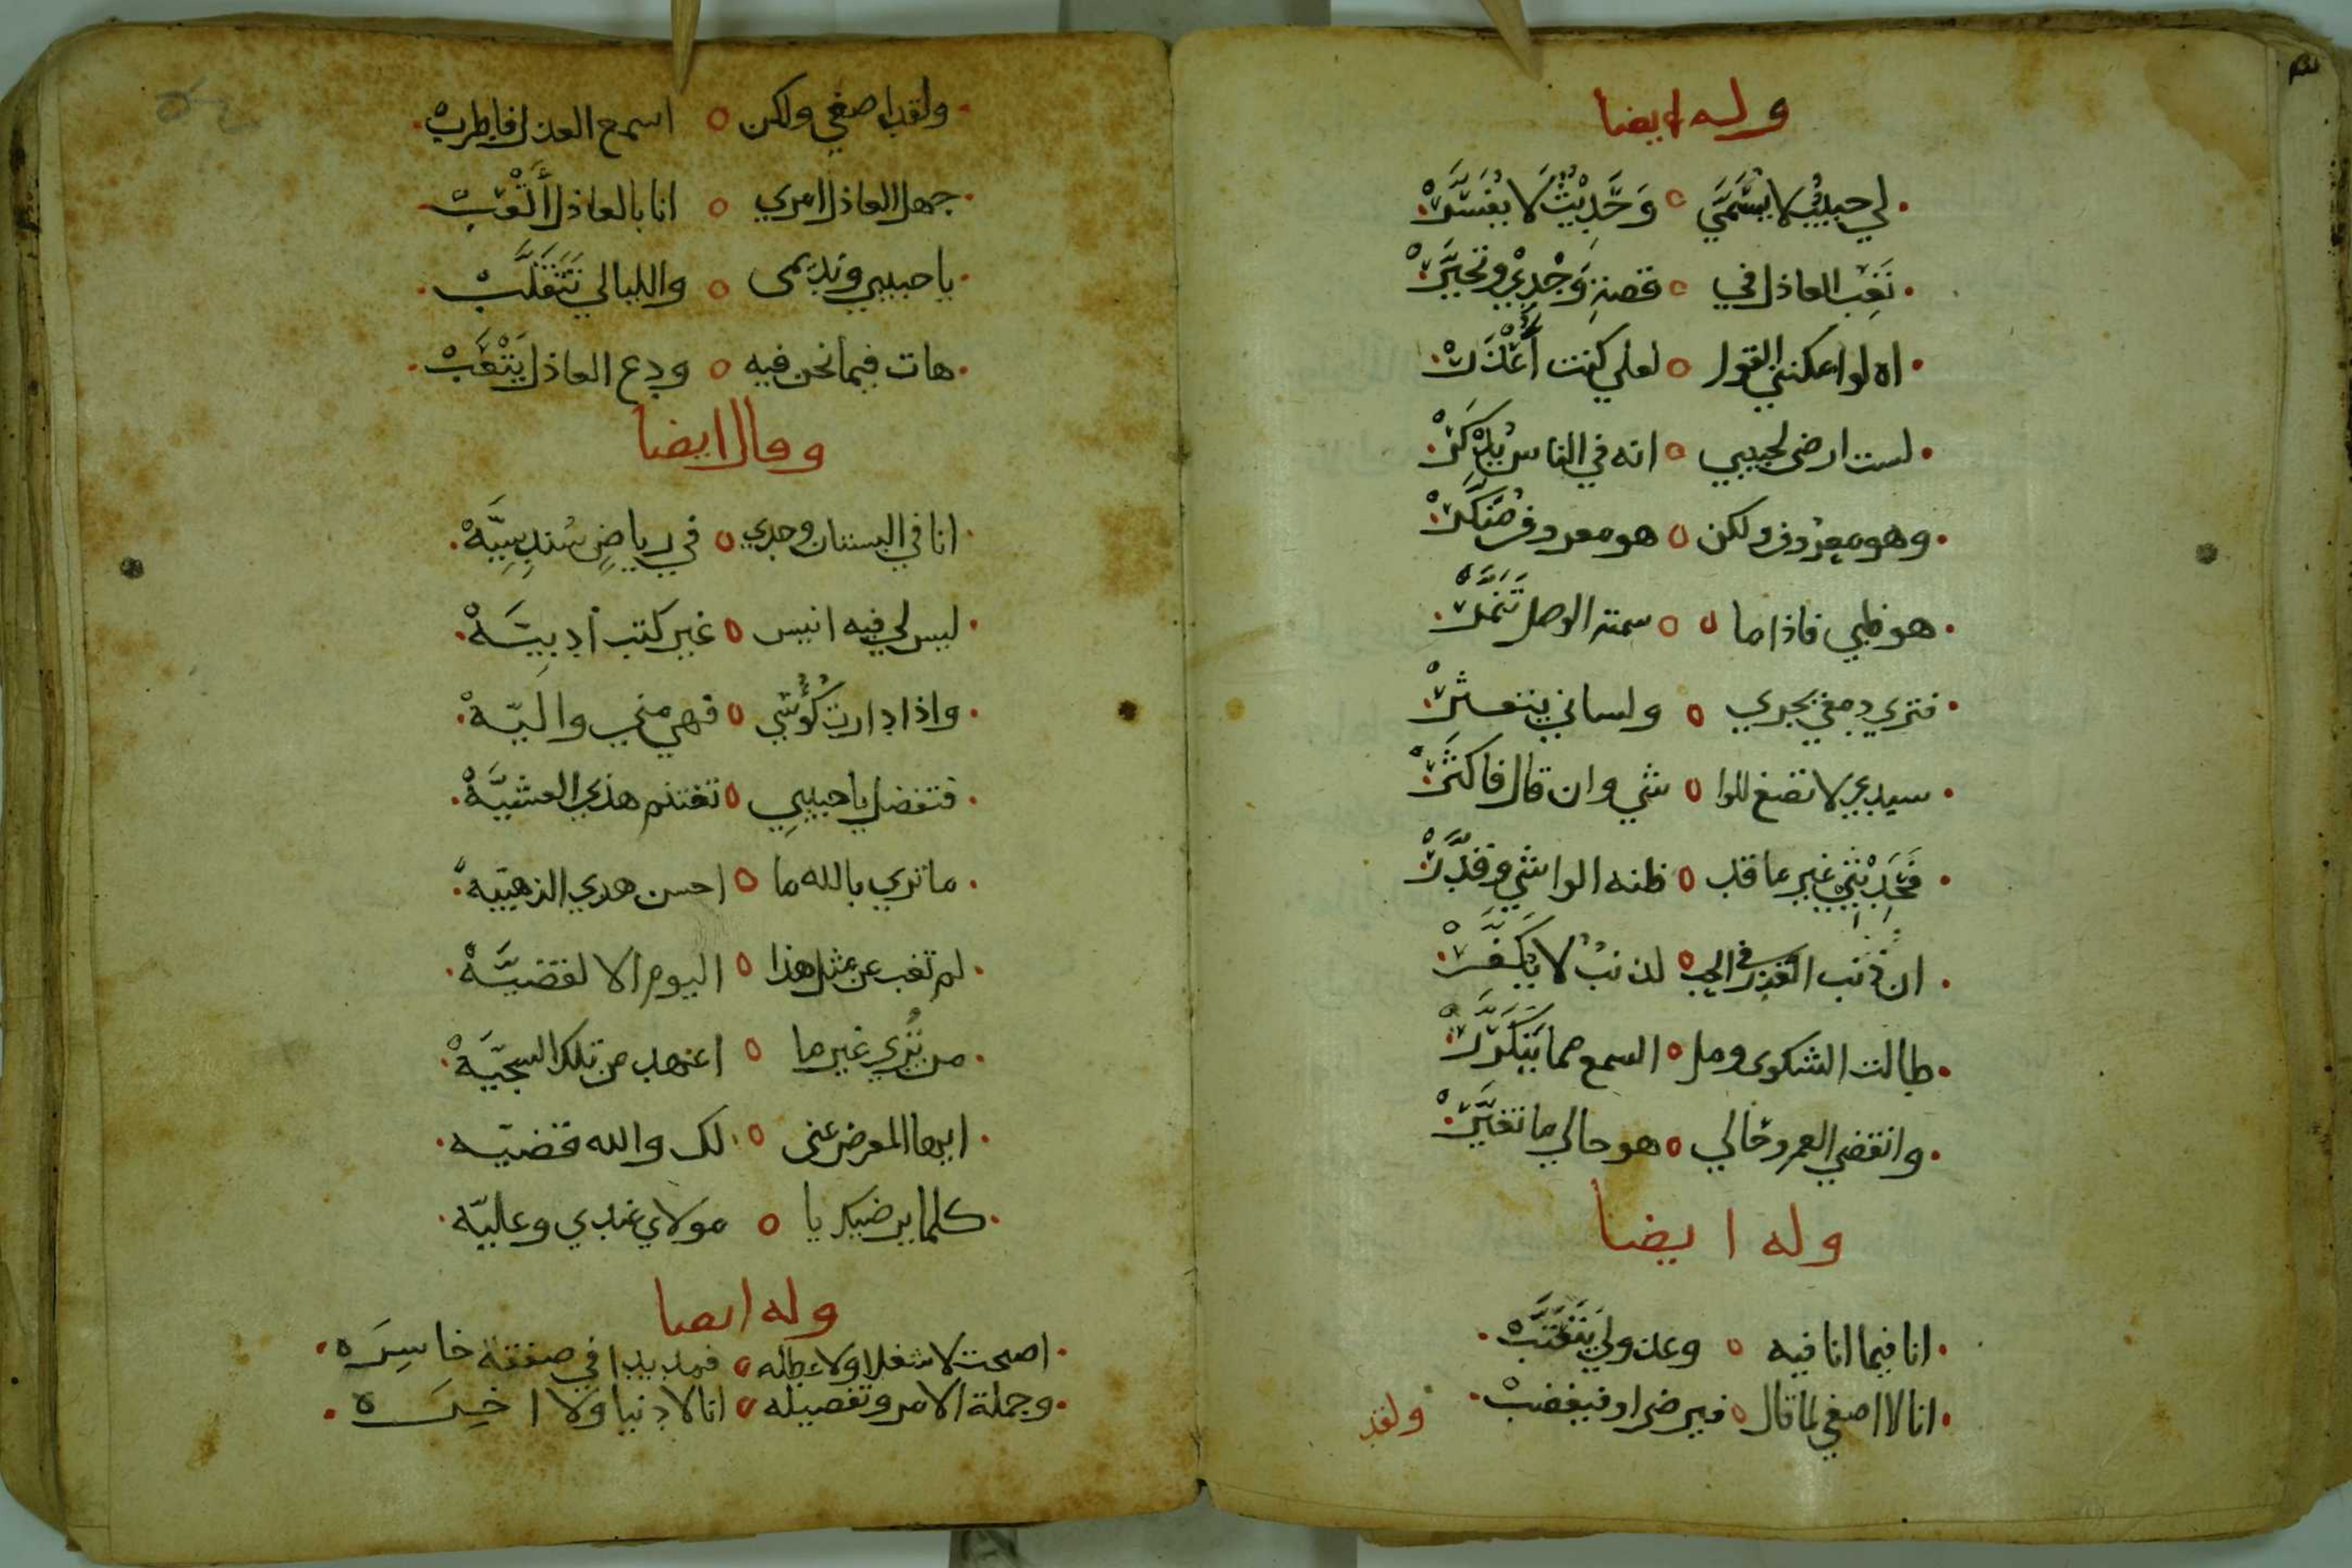 وله ايضا
لي حبيب لا يُسَمَّي وَحَدِيْثٌ لا يُفَسَّرْ
تَعِبَ العاذل في قصةِ وَجْدِيْ وتحيَّرْ
اه لو امكنني القول لعلي كنت أُعْذَرْ
لست ارضي لحبيبي انه في الناس يُذْكَرْ
وهو معروف ولكن هو معروف مُنَكَّرْ
هو ظبي فاذا ما سمته الوصل تَنَمَّرْ
فتري دمعي يجري ولساني يتعثرْ
سيدي لا تصغ للوا شي وان قال فاكثَرْ
فَحَدِيْثي غير ما قد ظنه الواشي وقدَّرْ
ان ذنب الغدر في الحب لذنبٌ لا يُكَفَّرْ
طالت الشكوي ومل السمع مما يَتَكَرَّرْ
وانقضي العمر وحالي هو حالي ما تغيَّرْ
وله ايضا
انا فيما انا فيه وعذولي يَتَعَتَّبْ
انا لا اصغي لما قال فيرضا او فيغضبْ
ولقد
ولقد اصغي ولكن اسمع العذل فاطربْ
جهل العاذل امري انا بالعاذل أَلْعَبْ
يا حبيبي ونديمى والليالي تَتَقَلَّبْ
هات فيما نحن فيه ودع العاذل يَتْعَبْ
وقال ايضا
انا في البستان وحدي في رياضٍ سُندِسِيَّهْ
ليس لي فيه انيس غير كتب أدبِيَّهْ
واذا دارت كُؤُسي فهي مني واليّهْ
فتفضل يا حبيبي تغتنم هذي العشيَّهْ
ما تري بالله ما احسن هدي الذهبيّه
لم تغب عن مثل هذا اليوم الا لقضيَّهْ
من تُري غير ما اعهد من تلك السجيَّهْ
ايها المعرض عنى لك والله قضيّه
كلما يرضيك يا مولاي عندي وعاليّه
وله ايضا
اصبحت لا شغلا ولا عطله مذبذبا في صفقة خاسِرَه
وجملة الامر وتفصيله انا لا دنيا ولا اخرَه